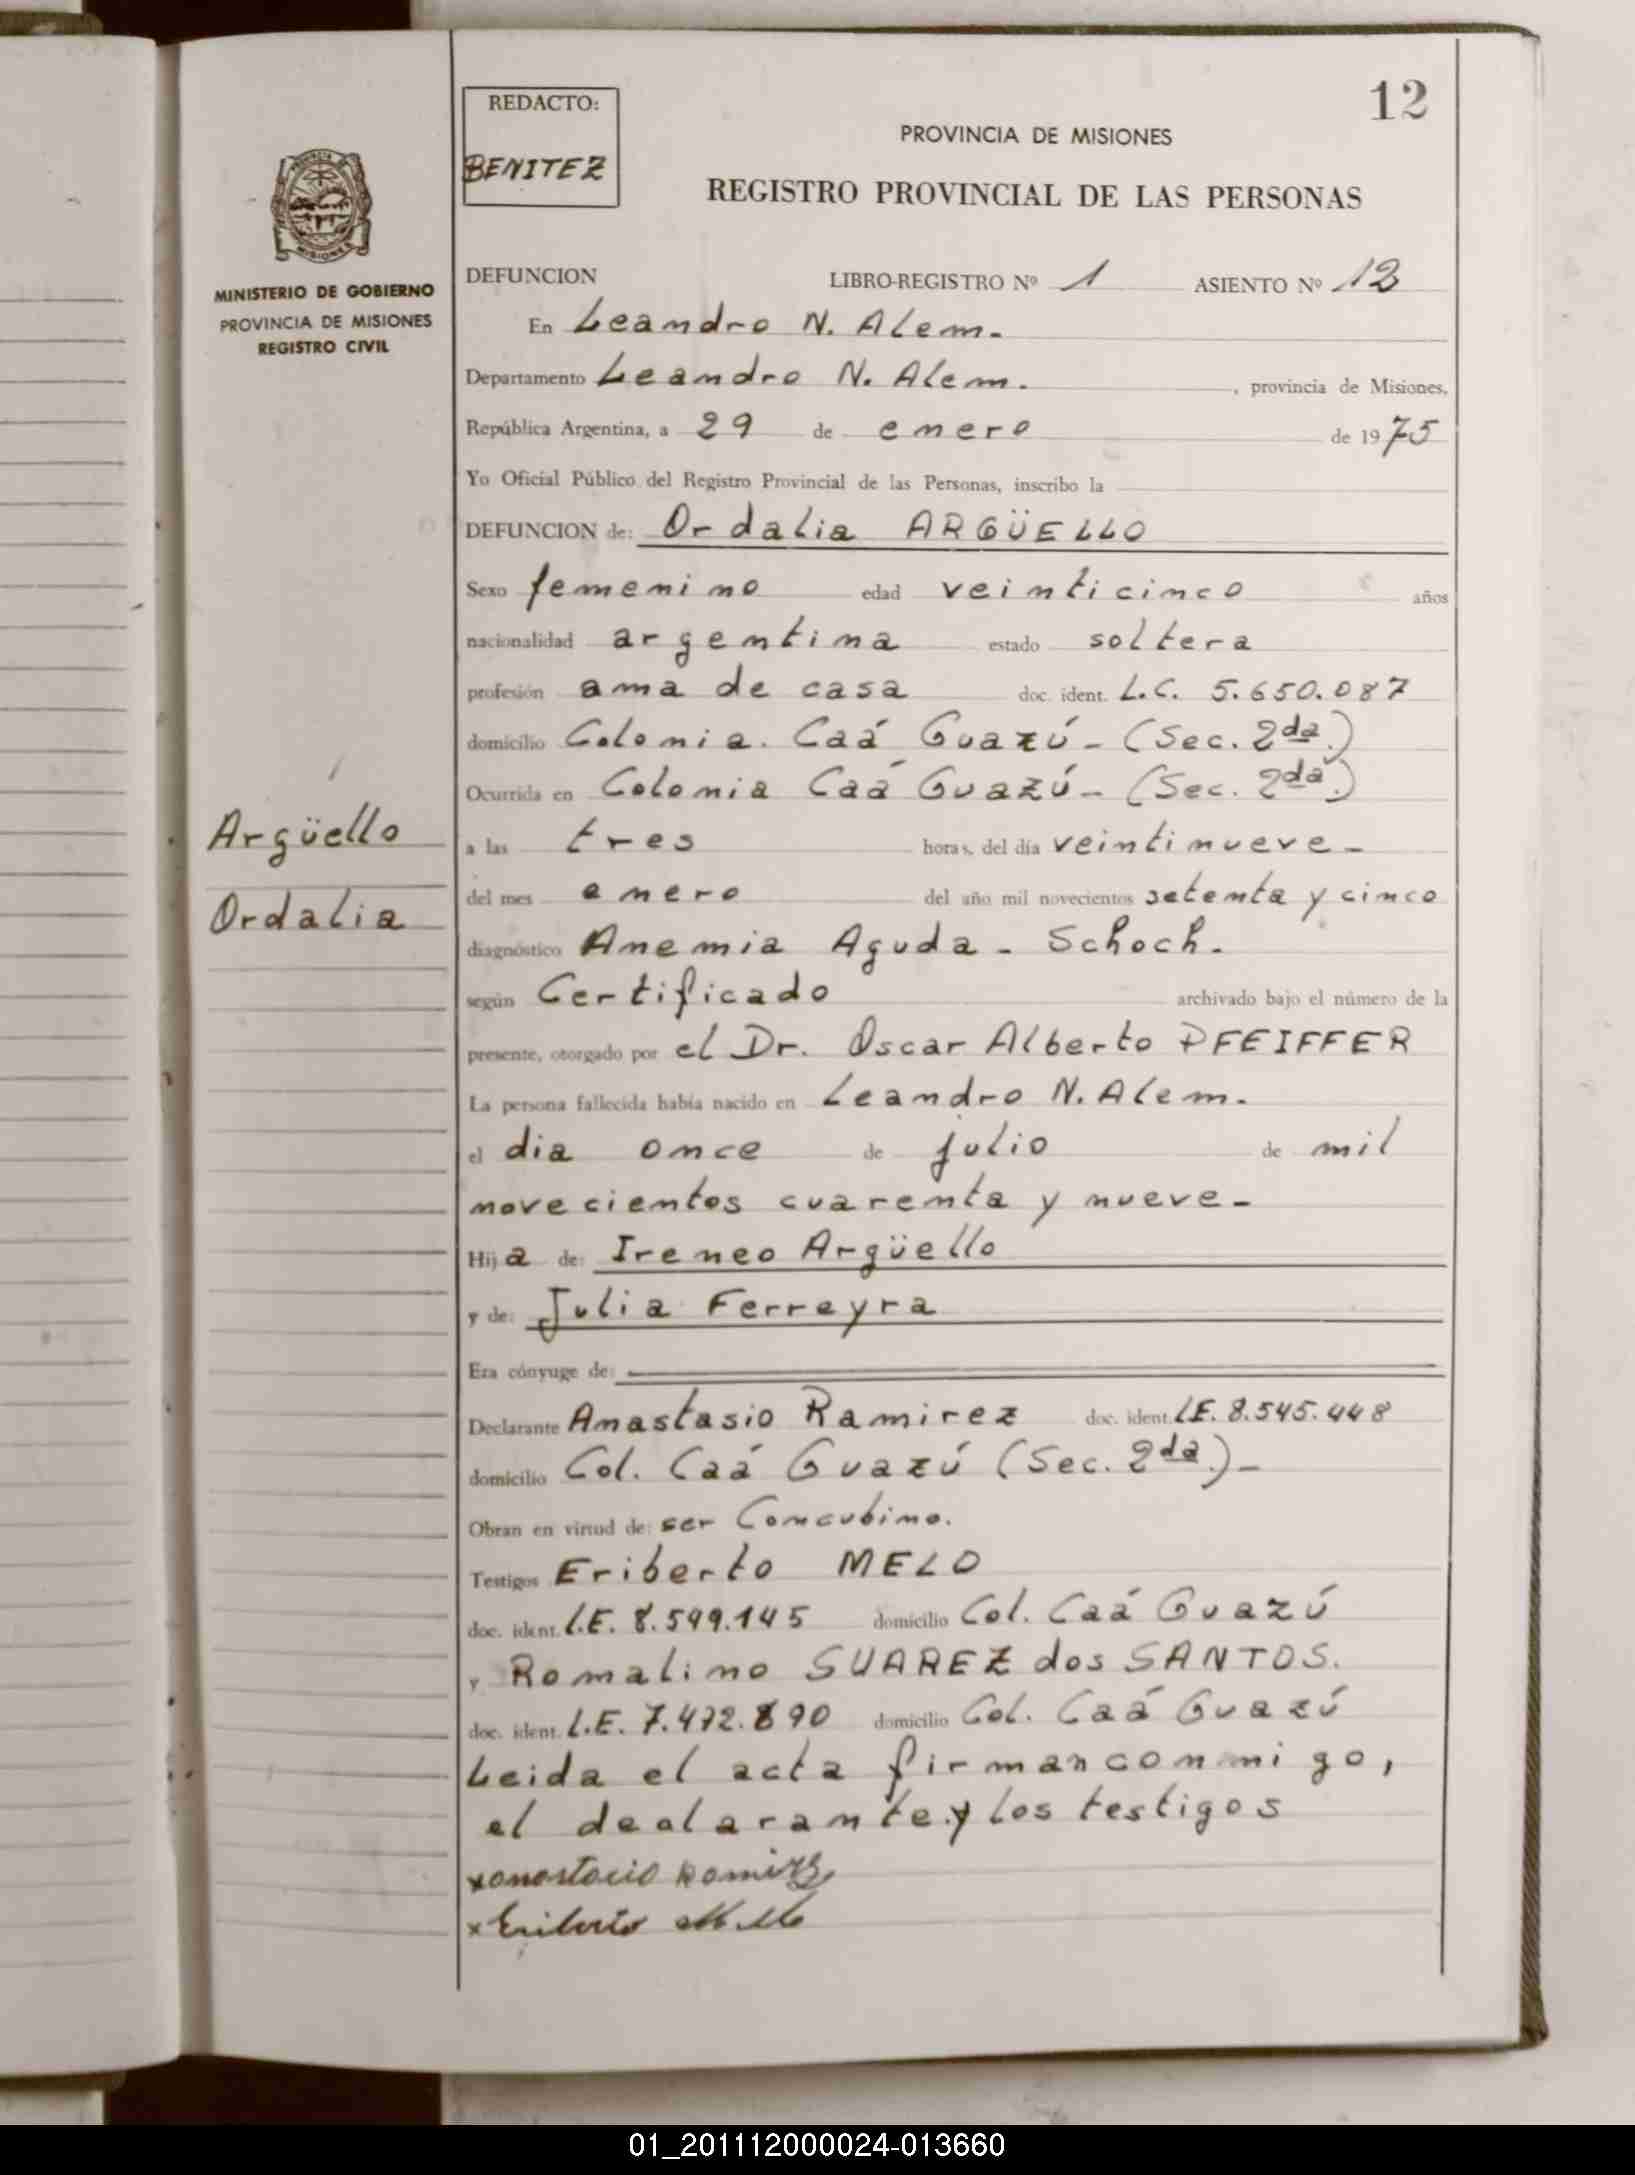 12
REDACTO:
BENITEZ
PROVINCIA DE MISIONES
REGISTRO PROVINCIAL DE LAS PERSONAS
MINISTERIO DE GOBIERNO
PROVINCIA DE MISIONES
REGISTRO CIVIL
DEFUNCION LIBRO-REGISTRO Nº 1 ASIENTO Nº 12
En Leandro N. Alem.
Departamento Leandro N. Alem. , provincia de Misiones,
República Argentina, a 29 de enero de 1975
Yo Oficial Público del Registro Provincial de las Personas, inscribo la
DEFUNCION de: Ordalia ARGÜELLO
Sexo femenino edad veinticinco años
nacionalidad argentina estado soltera
profesión ama de casa doc. ident. L.C. 5.650.087
domicilio Colonia. Caá Guazú - (Sec. 2da.)
Ocurrida en Colonia Caá Guazú - (Sec. 2da.)
Argüello
Ordalia
a las tres horas, del día veintinueve -
del mes enero del año mil novecientos setenta y cinco
diagnóstico Anemia Aguda - Schoch.
según Certificado archivado bajo el número de la
presente, otorgado por el Dr. Oscar Alberto PFEIFFER
La persona fallecida había nacido en Leandro N. Alem.
el dia once de julio de mil
novecientos cuarenta y nueve -
Hija de: Ireneo Argüello
y de: Julia Ferreyra
Era cónyuge de:
Declarante Anastasio Ramirez doc. ident. LE. 8.545.448
domicilio Col. Caá Guazú (Sec. 2da.) -
Obran en virtud de: ser Concubino.
Testigos Eriberto MELO
doc. ident. L.E. 8.599.145 domicilio Col. Caá Guazú
y Romalino SUAREZ dos SANTOS.
doc. ident. L.E. 7.472.890 domicilio Col. Caá Guazú
Leida el acta firman conmigo,
el dealarante y los testigos
x anastacio Ramirez
x Eriberto Melo
01_201112000024-013660